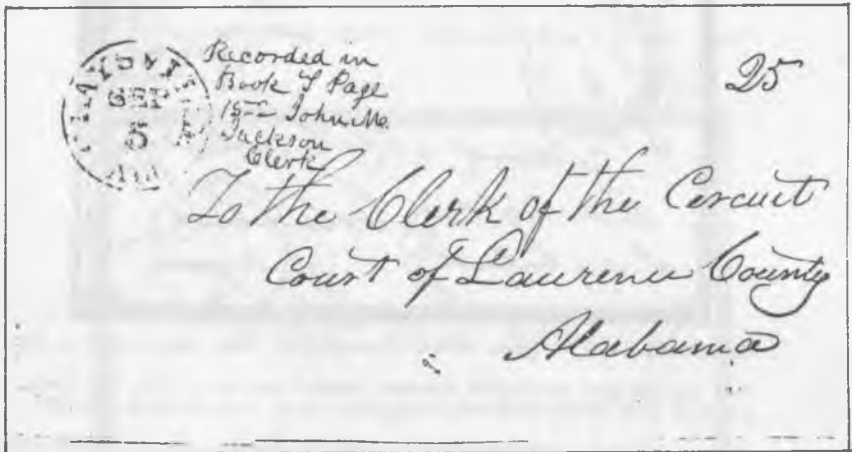 SEP
5
Recorded in
Book Page
John M.
Jackson
Clerk
25
To the Clerk of the Cercuit
Court of Laurence County
Alabama